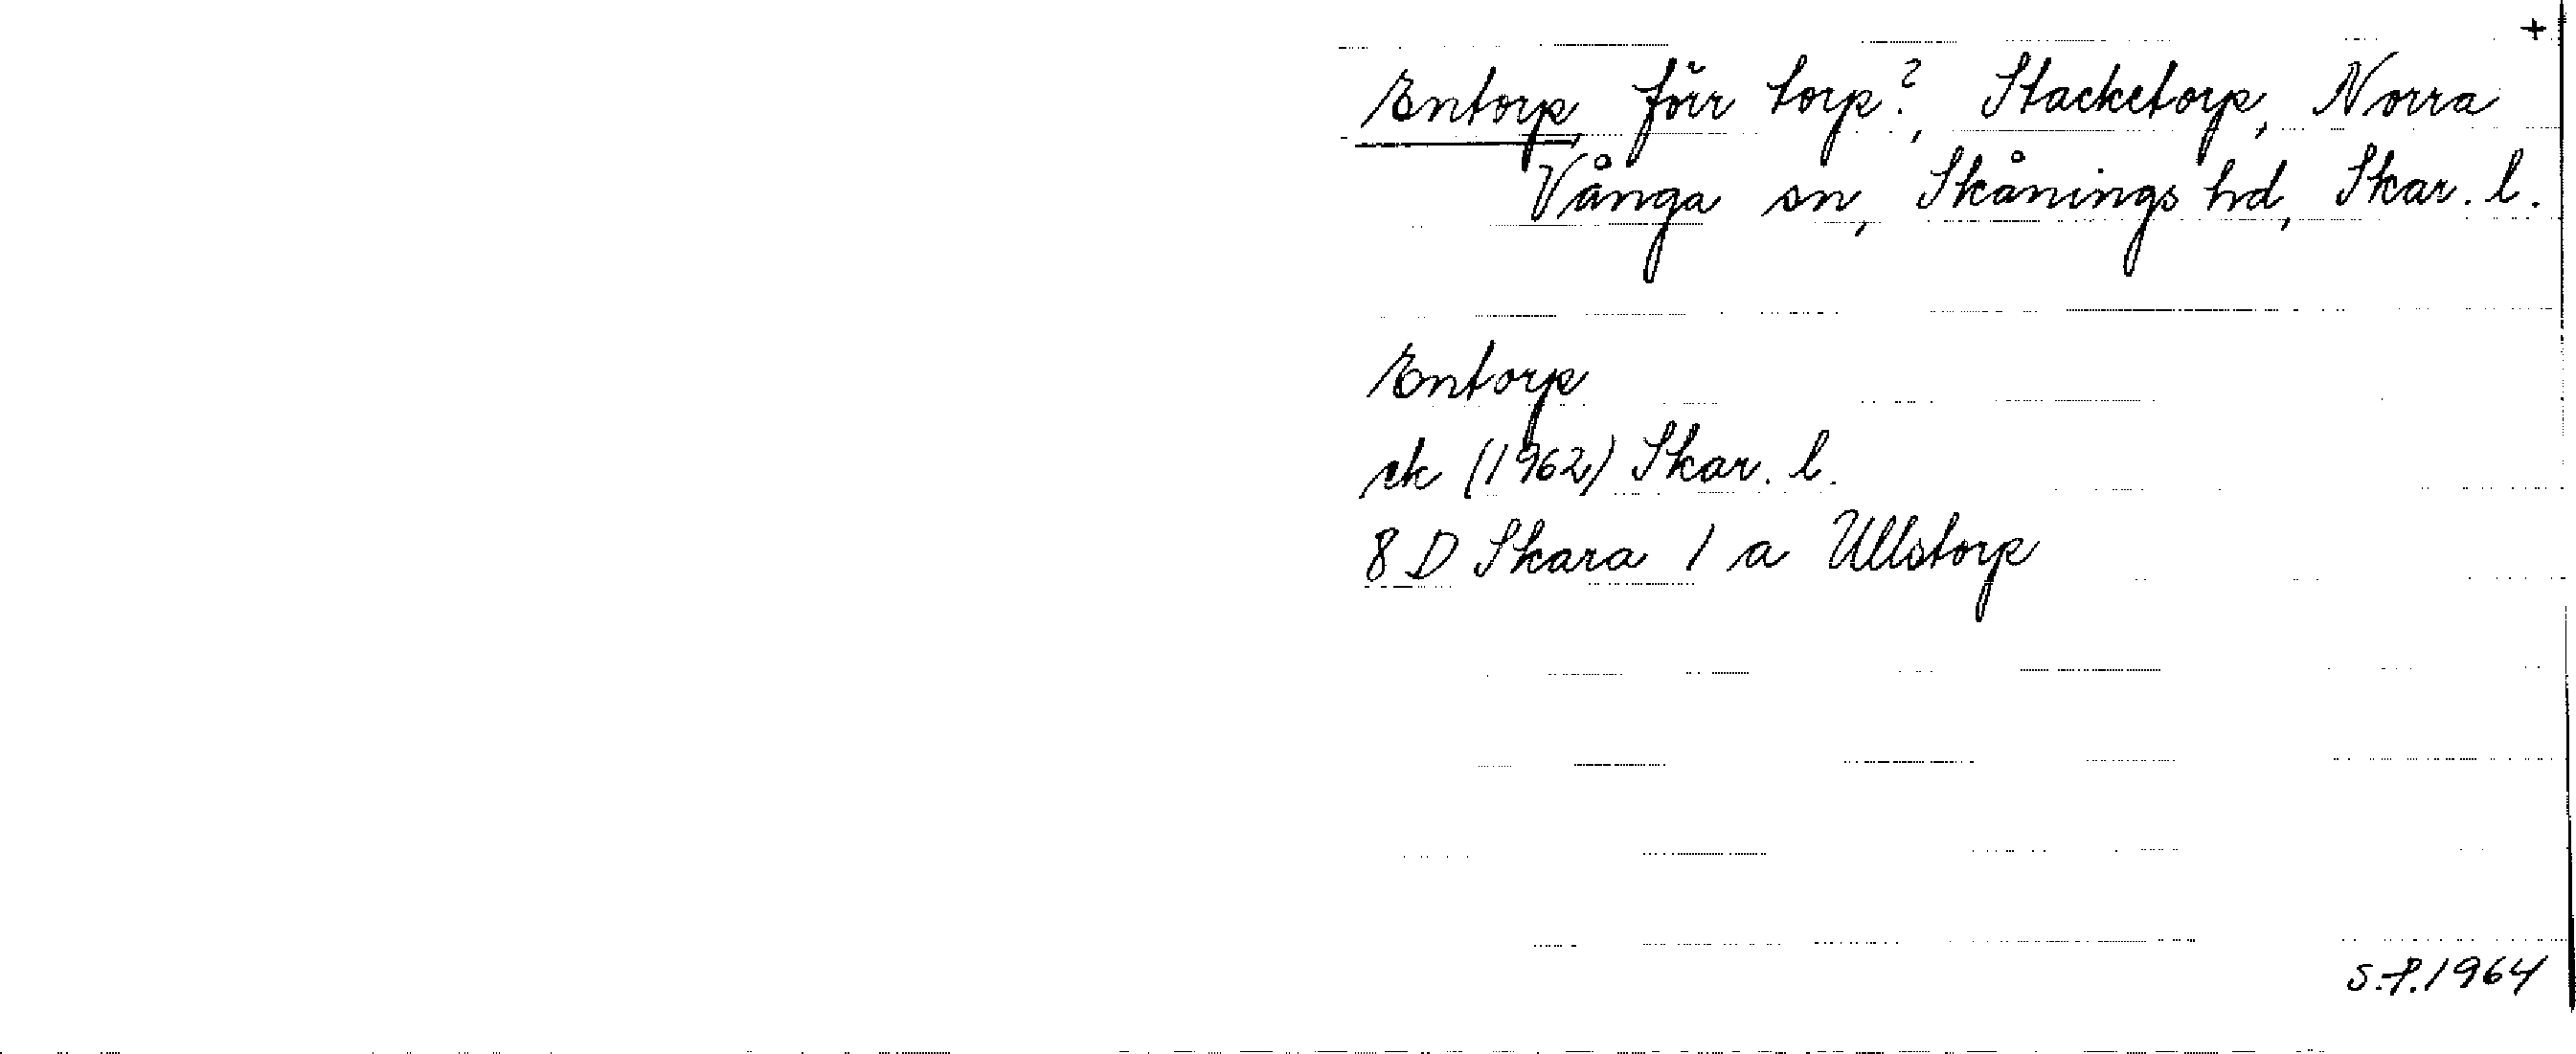 +
Entorp, förr torp?, Stacketorp, Norra
Vånga sn, Skånings hd, Skar. l.
Entorp
rk (1962) Skar. l.
8 D Skara 1 a Ullstorp
S.P. 1964